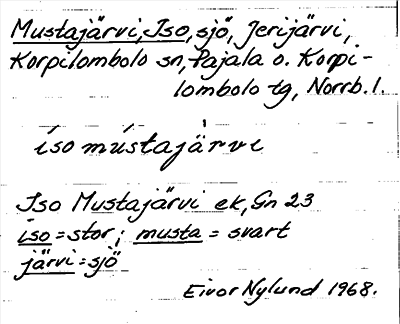 Mustajärvi, Iso, sjö, Jerijärvi,
Korpilombolo sn, Pajala o. Korpi-
lombolo tg, Norrb. l.
íso mústajä̀rvi
Iso Mustajärvi ek, Gn 23
iso = stor; musta = svart
järvi = sjö
Eivor Nylund 1968.